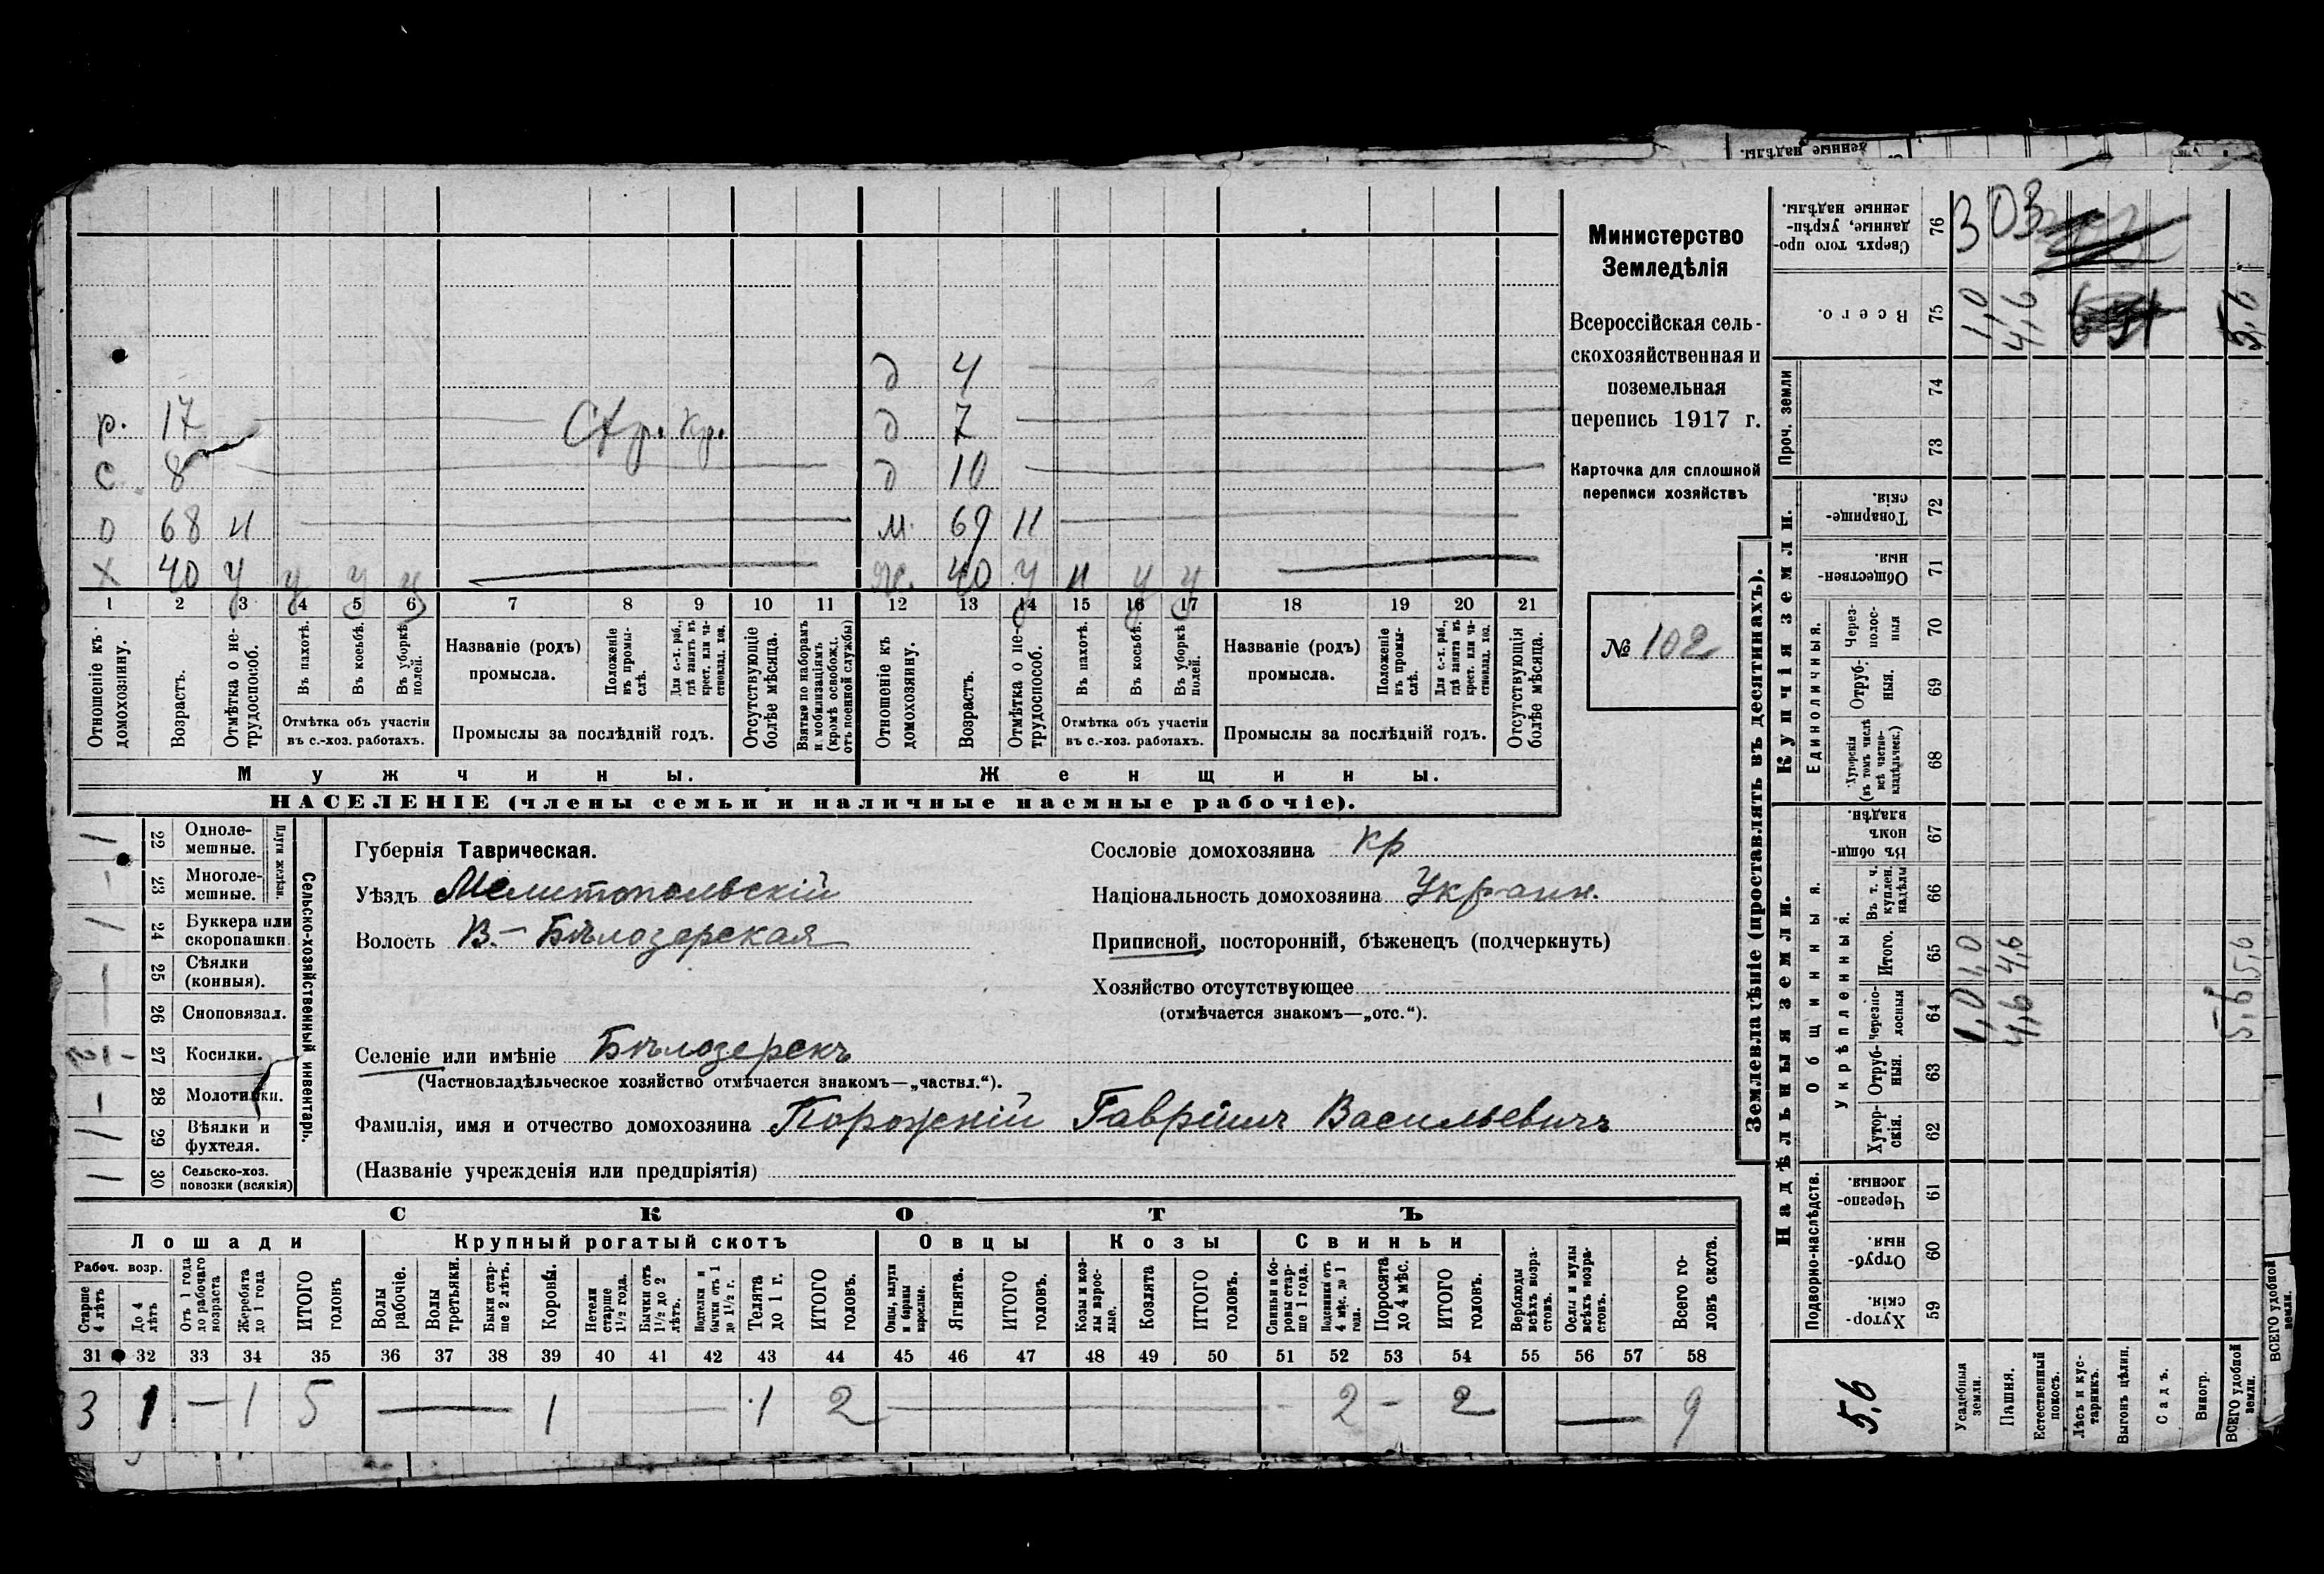 д 4
р. 17 Стр. кр. д 7
с 8 д 10
о 68 н м. 69 н
х 40 у у у у ж. 40 у н у у
1 2 3 4 5 6 7 8 9 10 11 12 13 14 15 16 17 18 19 20 21
Отношеніе къ домохозяину.
Возрастъ.
Отмѣтка о нетрудоспособ.
Въ пахотѣ.
Въ косьбѣ.
Въ уборкѣ полей.
Отмѣтка объ участіи
въ с.-хоз. работахъ.
Названіе (родъ)
промысла.
Положеніе въ промыслѣ.
Для с.-х. раб., гдѣ занятъ въ крест. или частновлад. хоз.
Промыслы за послѣдній годъ.
Отсутствующіе болѣе мѣсяца.
Взятые по наборамъ и мобилизаціямъ (кромѣ освобожд. отъ военной службы)
Отношеніе къ домохозяину.
Возрастъ.
Отмѣтка о нетрудоспособ.
Въ пахотѣ.
Въ косьбѣ.
Въ уборкѣ полей.
Отмѣтка объ участіи
въ с.-хоз. работахъ.
Названіе (родъ)
промысла.
Положеніе въ промыслѣ.
Для с.-х. раб., гдѣ занята въ крест. или частновлад. хоз.
Промыслы за послѣдній годъ.
Отсутствующія болѣе мѣсяца.
Мужчины. Женщины.
НАСЕЛЕНІЕ (члены семьи и наличные наемные рабочіе).
Министерство
Земледѣлія
Всероссійская сель-
скохозяйственная и
поземельная
перепись 1917 г.
Карточка для сплошной
переписи хозяйствъ
№ 102
Сельско-хозяйственный инвентарь.
Плуги желѣзн.
1 22 Однолемешные.
— 23 Многолемешные.
1 24 Буккера или скоропашки
— 25 Сѣялки (конныя).
26 Сноповязал.
27 Косилки.
— 28 Молотилки.
1 29 Вѣялки и фухтеля.
1 30 Сельско-хоз. повозки (всякія)
Губернія Таврическая.
Уѣздъ Мелитопольскій
Волость В.-Бѣлозерская
Селеніе или имѣніе Бѣлозерскъ
(Частновладѣльческое хозяйство отмѣчается знакомъ—„частвл.“).
Фамилія, имя и отчество домохозяина Порожскій Гавріилъ Васильевичъ
(Названіе учрежденія или предпріятія)
Сословіе домохозяина кр
Національность домохозяина Украин.
Приписной, посторонній, бѣженецъ (подчеркнуть)
Хозяйство отсутствующее
(отмѣчается знакомъ—„отс.“).
СКОТЪ
Лошади Крупный рогатый скотъ Овцы Козы Свиньи
Рабоч. возр.
Старше 4 лѣтъ
До 4 лѣтъ
Отъ 1 года до рабочаго возраста
Жеребята до 1 года
ИТОГО головъ
Волы рабочіе.
Волы третьяки.
Быки старше 2 лѣтъ.
Коровы.
Нетели старше 1½ года.
Бычки отъ 1½ до 2 лѣтъ.
Подтелки и бычки отъ 1 до 1½ г.
Телята до 1 г.
ИТОГО головъ.
Овцы, валухи и бараны взрослые.
Ягнята.
ИТОГО головъ.
Козы и козлы взрослые.
Козлята
ИТОГО головъ.
Свиньи и боровы старше 1 года.
Подсвинки отъ 4 мѣс. до 1 года.
Поросята до 4 мѣс.
ИТОГО головъ.
Верблюды всѣхъ возрастовъ.
Ослы и мулы всѣхъ возрастовъ.
Всего головъ скота.
31 32 33 34 35 36 37 38 39 40 41 42 43 44 45 46 47 48 49 50 51 52 53 54 55 56 57 58
3 1 — 1 5 — 1 — 1 2 — 2 — 2 — 9
Землевладѣніе (проставлять въ десятинахъ).
Надѣльныя земли. Купчія земли. Проч. земли
Подворно-наслѣдств.
Общинныя.
Укрѣпленныя.
Единоличныя.
Хуторскія. 59
Отрубныя. 60
Черезполосныя. 61
Хуторскія. 62
Отрубныя. 63
Черезполосныя 64 1,0 4,6 5,6
Итого. 65 1,0 4,6 5,6
Въ т. ч. куплен. надѣлы 66
Въ общинномъ владѣн. 67
Хуторскія (въ томъ числѣ всѣ частновладѣльческ.) 68
Отрубныя. 69
Черезполосныя 70
Общественныя. 71
Товарищескія. 72
73
74
Всего. 75 1,0 4,6 5,6
Сверхъ того проданные, укрѣпленные надѣлы. 76
303
5,6
Усадебныя земли.
Пашня.
Естественный покосъ.
Лѣсъ и кустарникъ.
Выгонъ цѣлин.
Садъ.
Виногр.
ВСЕГО удобной земли.
ВСЕГО удобной земли.
денные надѣлы.